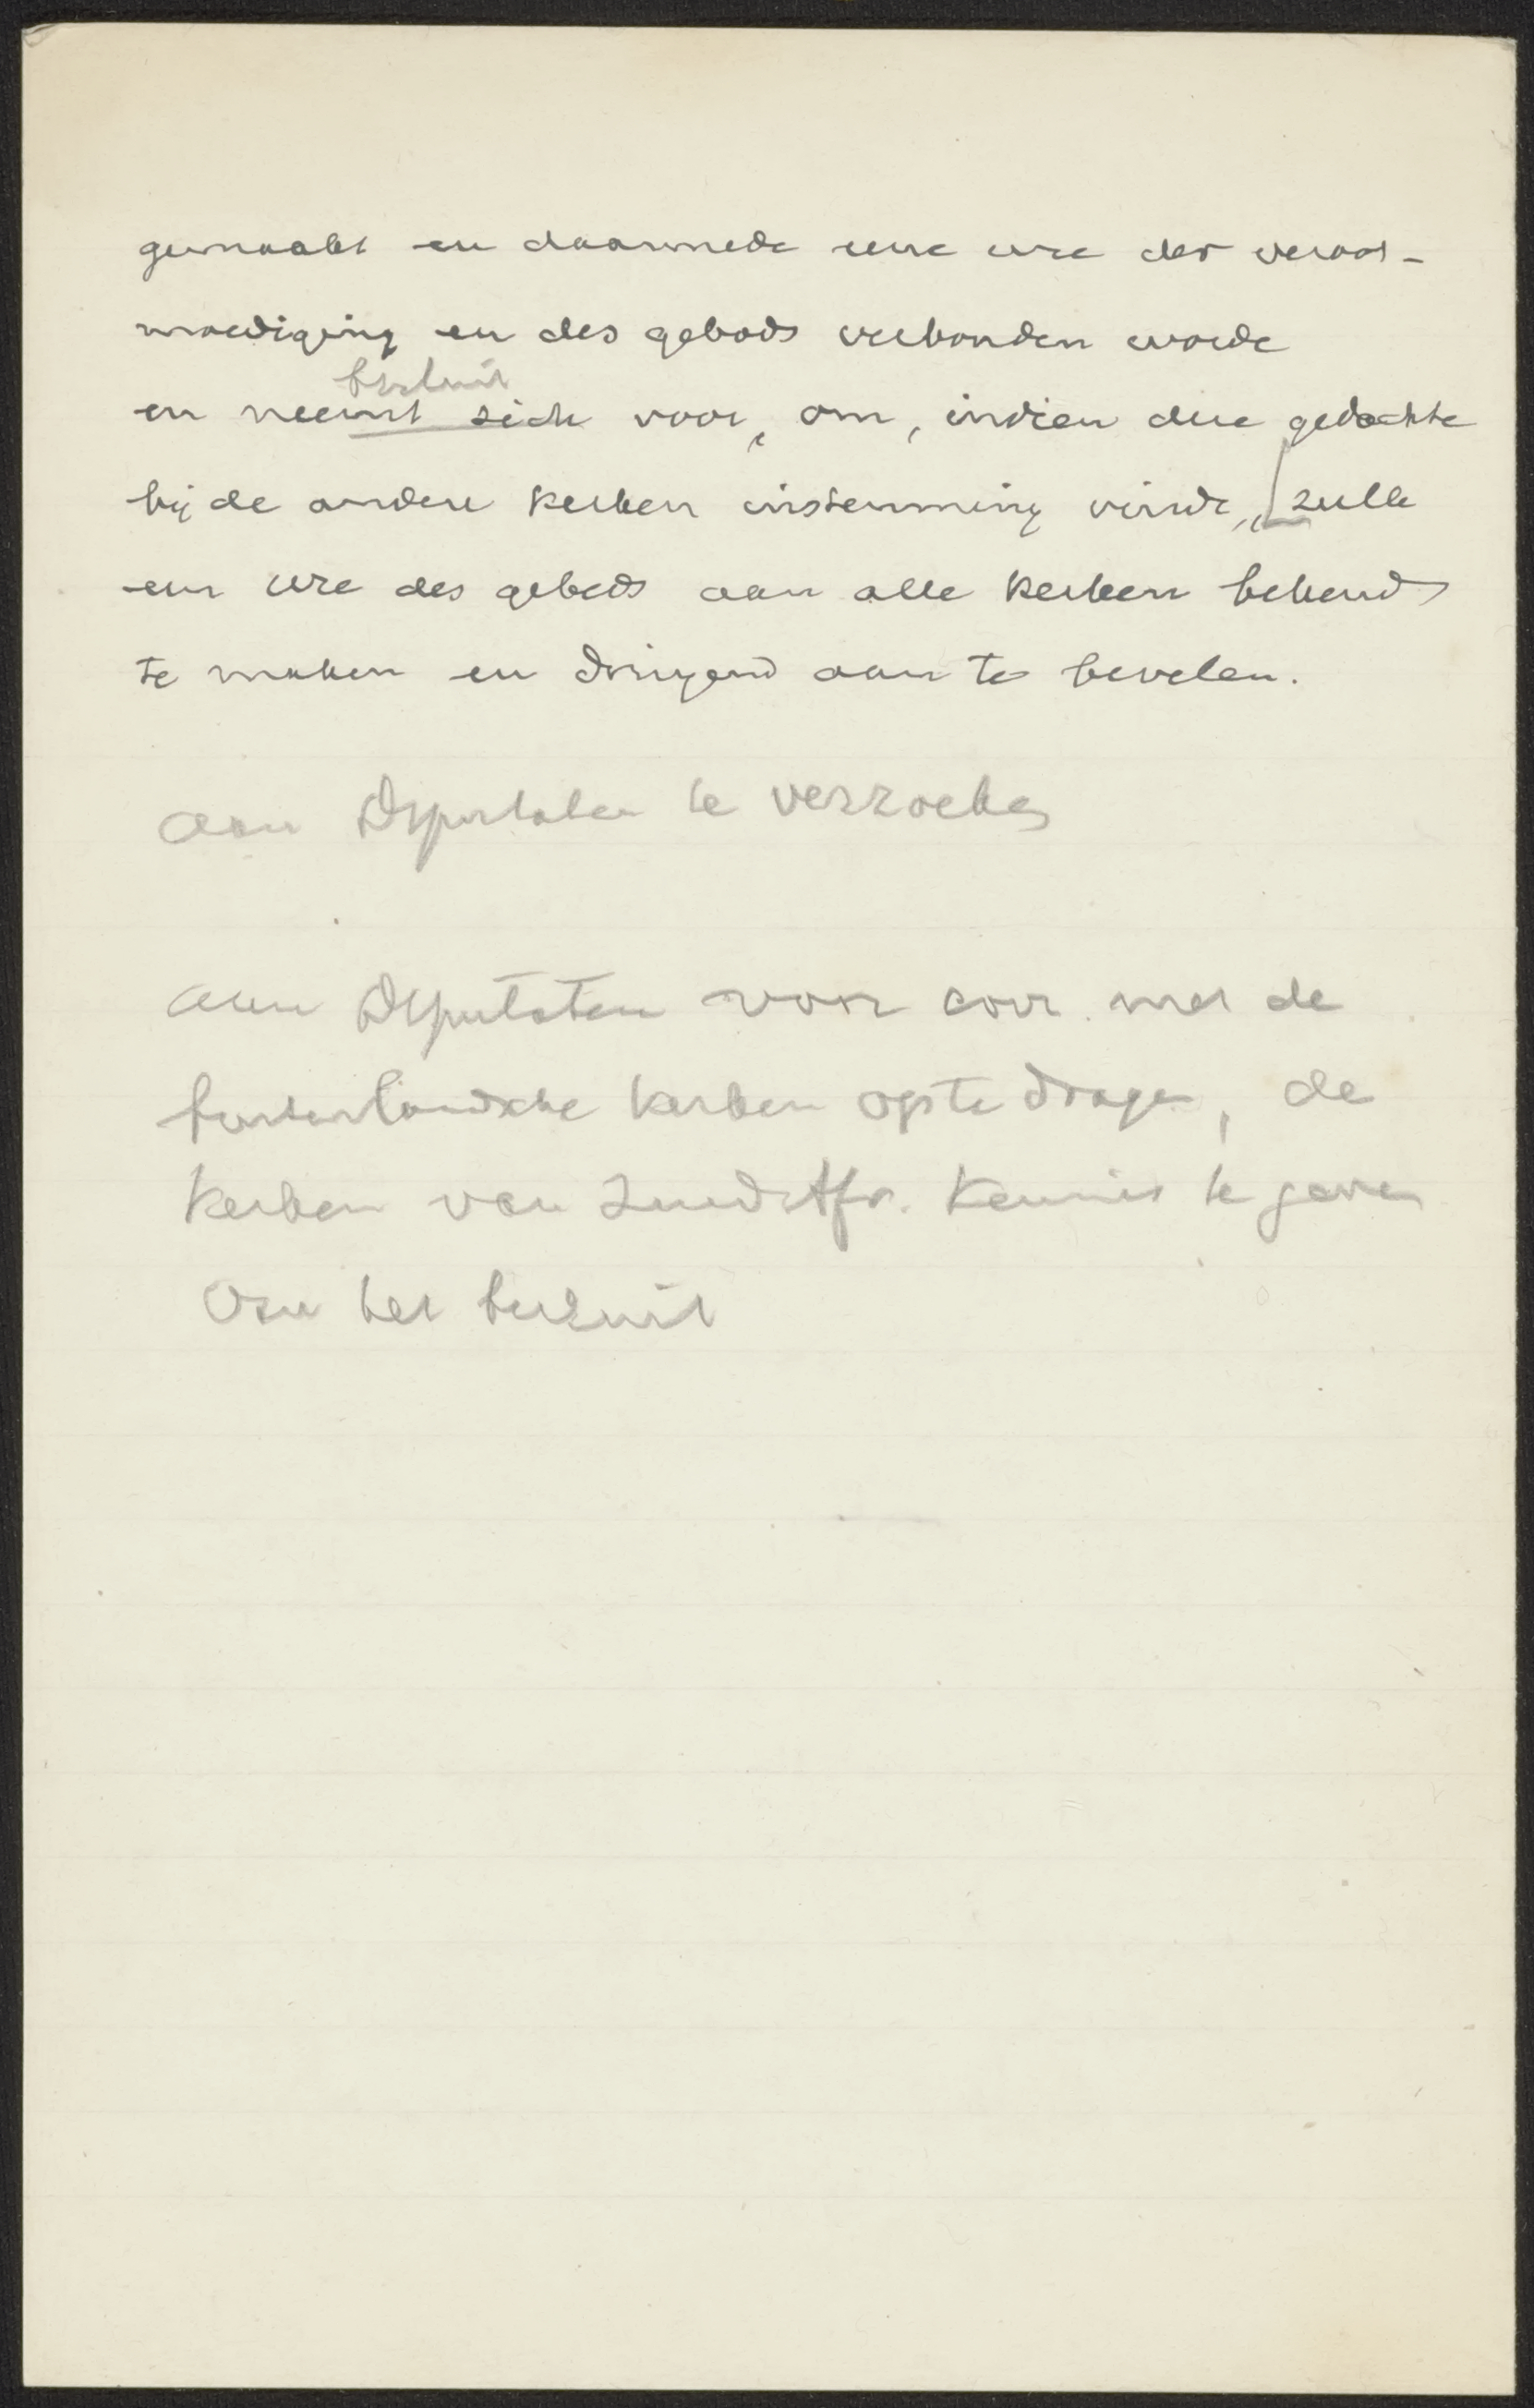 gemaakt en daarmede eene ure der veroot-
moediging en des gebeds verbonden worde
besluit
en neemt zich voor, om, indien deze gedachte
bij de andere kerken instemming vindt, zulk
een ure des gebeds aan alle kerken bekend
te maken en dringend aan te bevelen.
aan Deputaten te verzoeken
aan Deputaten voor corr. met de
buitenlandsche kerken op te dragen, de
kerken van Zuid Afr. kennis te geven
van het besluit